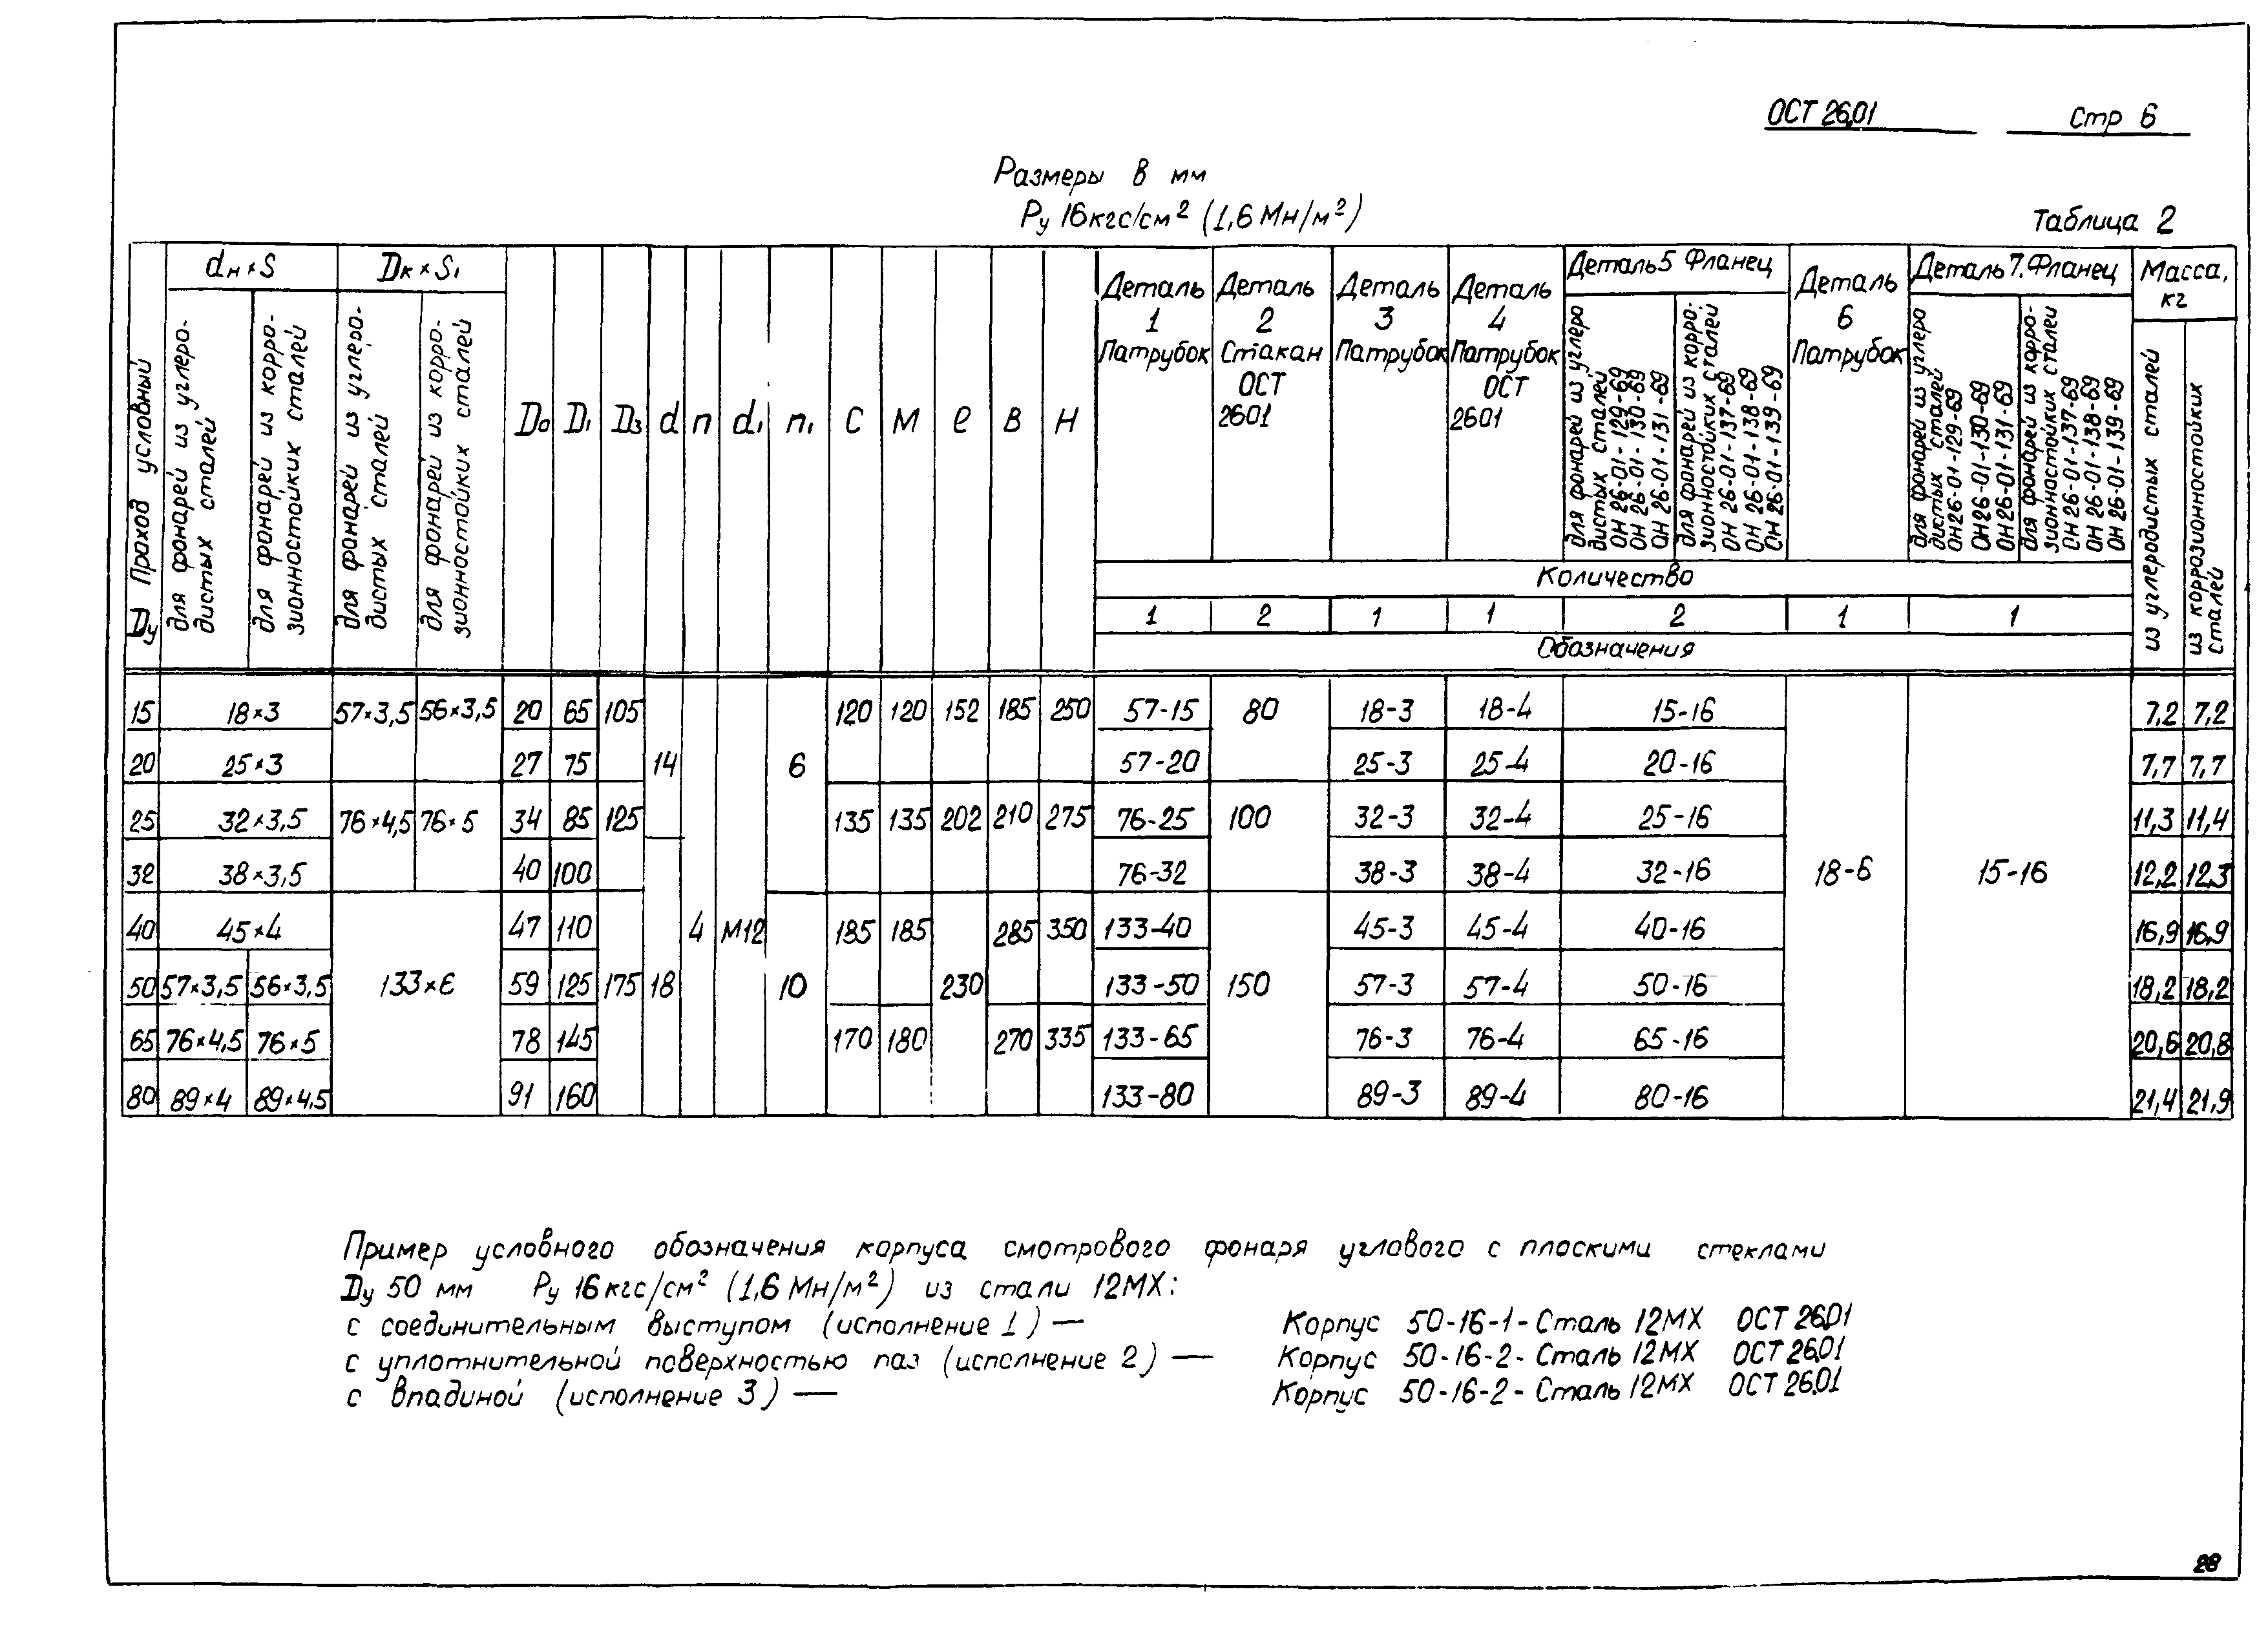 ОСТ 26.01 Стр 6
Размеры в мм
Ру 16кгс/см² (1,6 Мн/м²)
Таблица 2
Dу Проход условный
dн×S
для фонарей из углеро-
дистых сталей
для фонарей из корро-
зионностойких сталей
Dк×S₁
для фонарей из углеро-
дистых сталей
для фонарей из корро-
зионностойких сталей
D₀ D₁ D₃ d n d₁ n₁ C M l B H
Деталь
1
Патрубок
Деталь
2
Стакан
ОСТ
2601
Деталь
3
Патрубок
Деталь
4
Патрубок
ОСТ
2601
Деталь 5 Фланец
для фонарей из углеро
дистых сталей
ОН 26-01-129-69
ОН 26-01-130-69
ОН 26-01-131-69
для фонарей из корро-
зионностойких сталей
ОН 26-01-137-69
ОН 26-01-138-69
ОН 26-01-139-69
Деталь
6
Патрубок
Деталь 7. Фланец
для фонарей из углеро
дистых сталей
ОН26-01-129-69
ОН26-01-130-69
ОН26-01-131-69
для фонарей из корро-
зионнастойких сталей
ОН 26-01-137-69
ОН 26-01-138-69
ОН 26-01-139-69
Масса,
кг
из углеродистых сталей
из коррозионностойких
сталей
Количество
1 2 1 1 2 1 1
Обозначения
15 18×3 57×3,5 56×3,5 20 65 105 120 120 152 185 250 57-15 80 18-3 18-4 15-16 7,2 7,2
20 25×3 27 75 14 6 57-20 25-3 25-4 20-16 7,7 7,7
25 32×3,5 76×4,5 76×5 34 85 125 135 135 202 210 275 76-25 100 32-3 32-4 25-16 11,3 11,4
32 38×3,5 40 100 76-32 38-3 38-4 32-16 18-6 15-16 12,2 12,3
40 45×4 47 110 4 М12 185 185 285 350 133-40 45-3 45-4 40-16 16,9 16,9
50 57×3,5 56×3,5 133×6 59 125 175 18 10 230 133-50 150 57-3 57-4 50-16 18,2 18,2
65 76×4,5 76×5 78 145 170 180 270 335 133-65 76-3 76-4 65-16 20,6 20,8
80 89×4 89×4,5 91 160 133-80 89-3 89-4 80-16 21,4 21,9
Пример условного обозначения корпуса смотрового фонаря углового с плоскими стеклами
Dу 50 мм Ру 16кгс/см² (1,6 Мн/м²) из стали 12МХ:
с соединительным выступом (исполнение 1) — Корпус 50-16-1- Сталь 12МХ ОСТ 26.01
с уплотнительной поверхностью паз (исполнение 2) — Корпус 50-16-2- Сталь 12МХ ОСТ 26.01
с впадиной (исполнение 3) — Корпус 50-16-2- Сталь 12МХ ОСТ 26.01
28